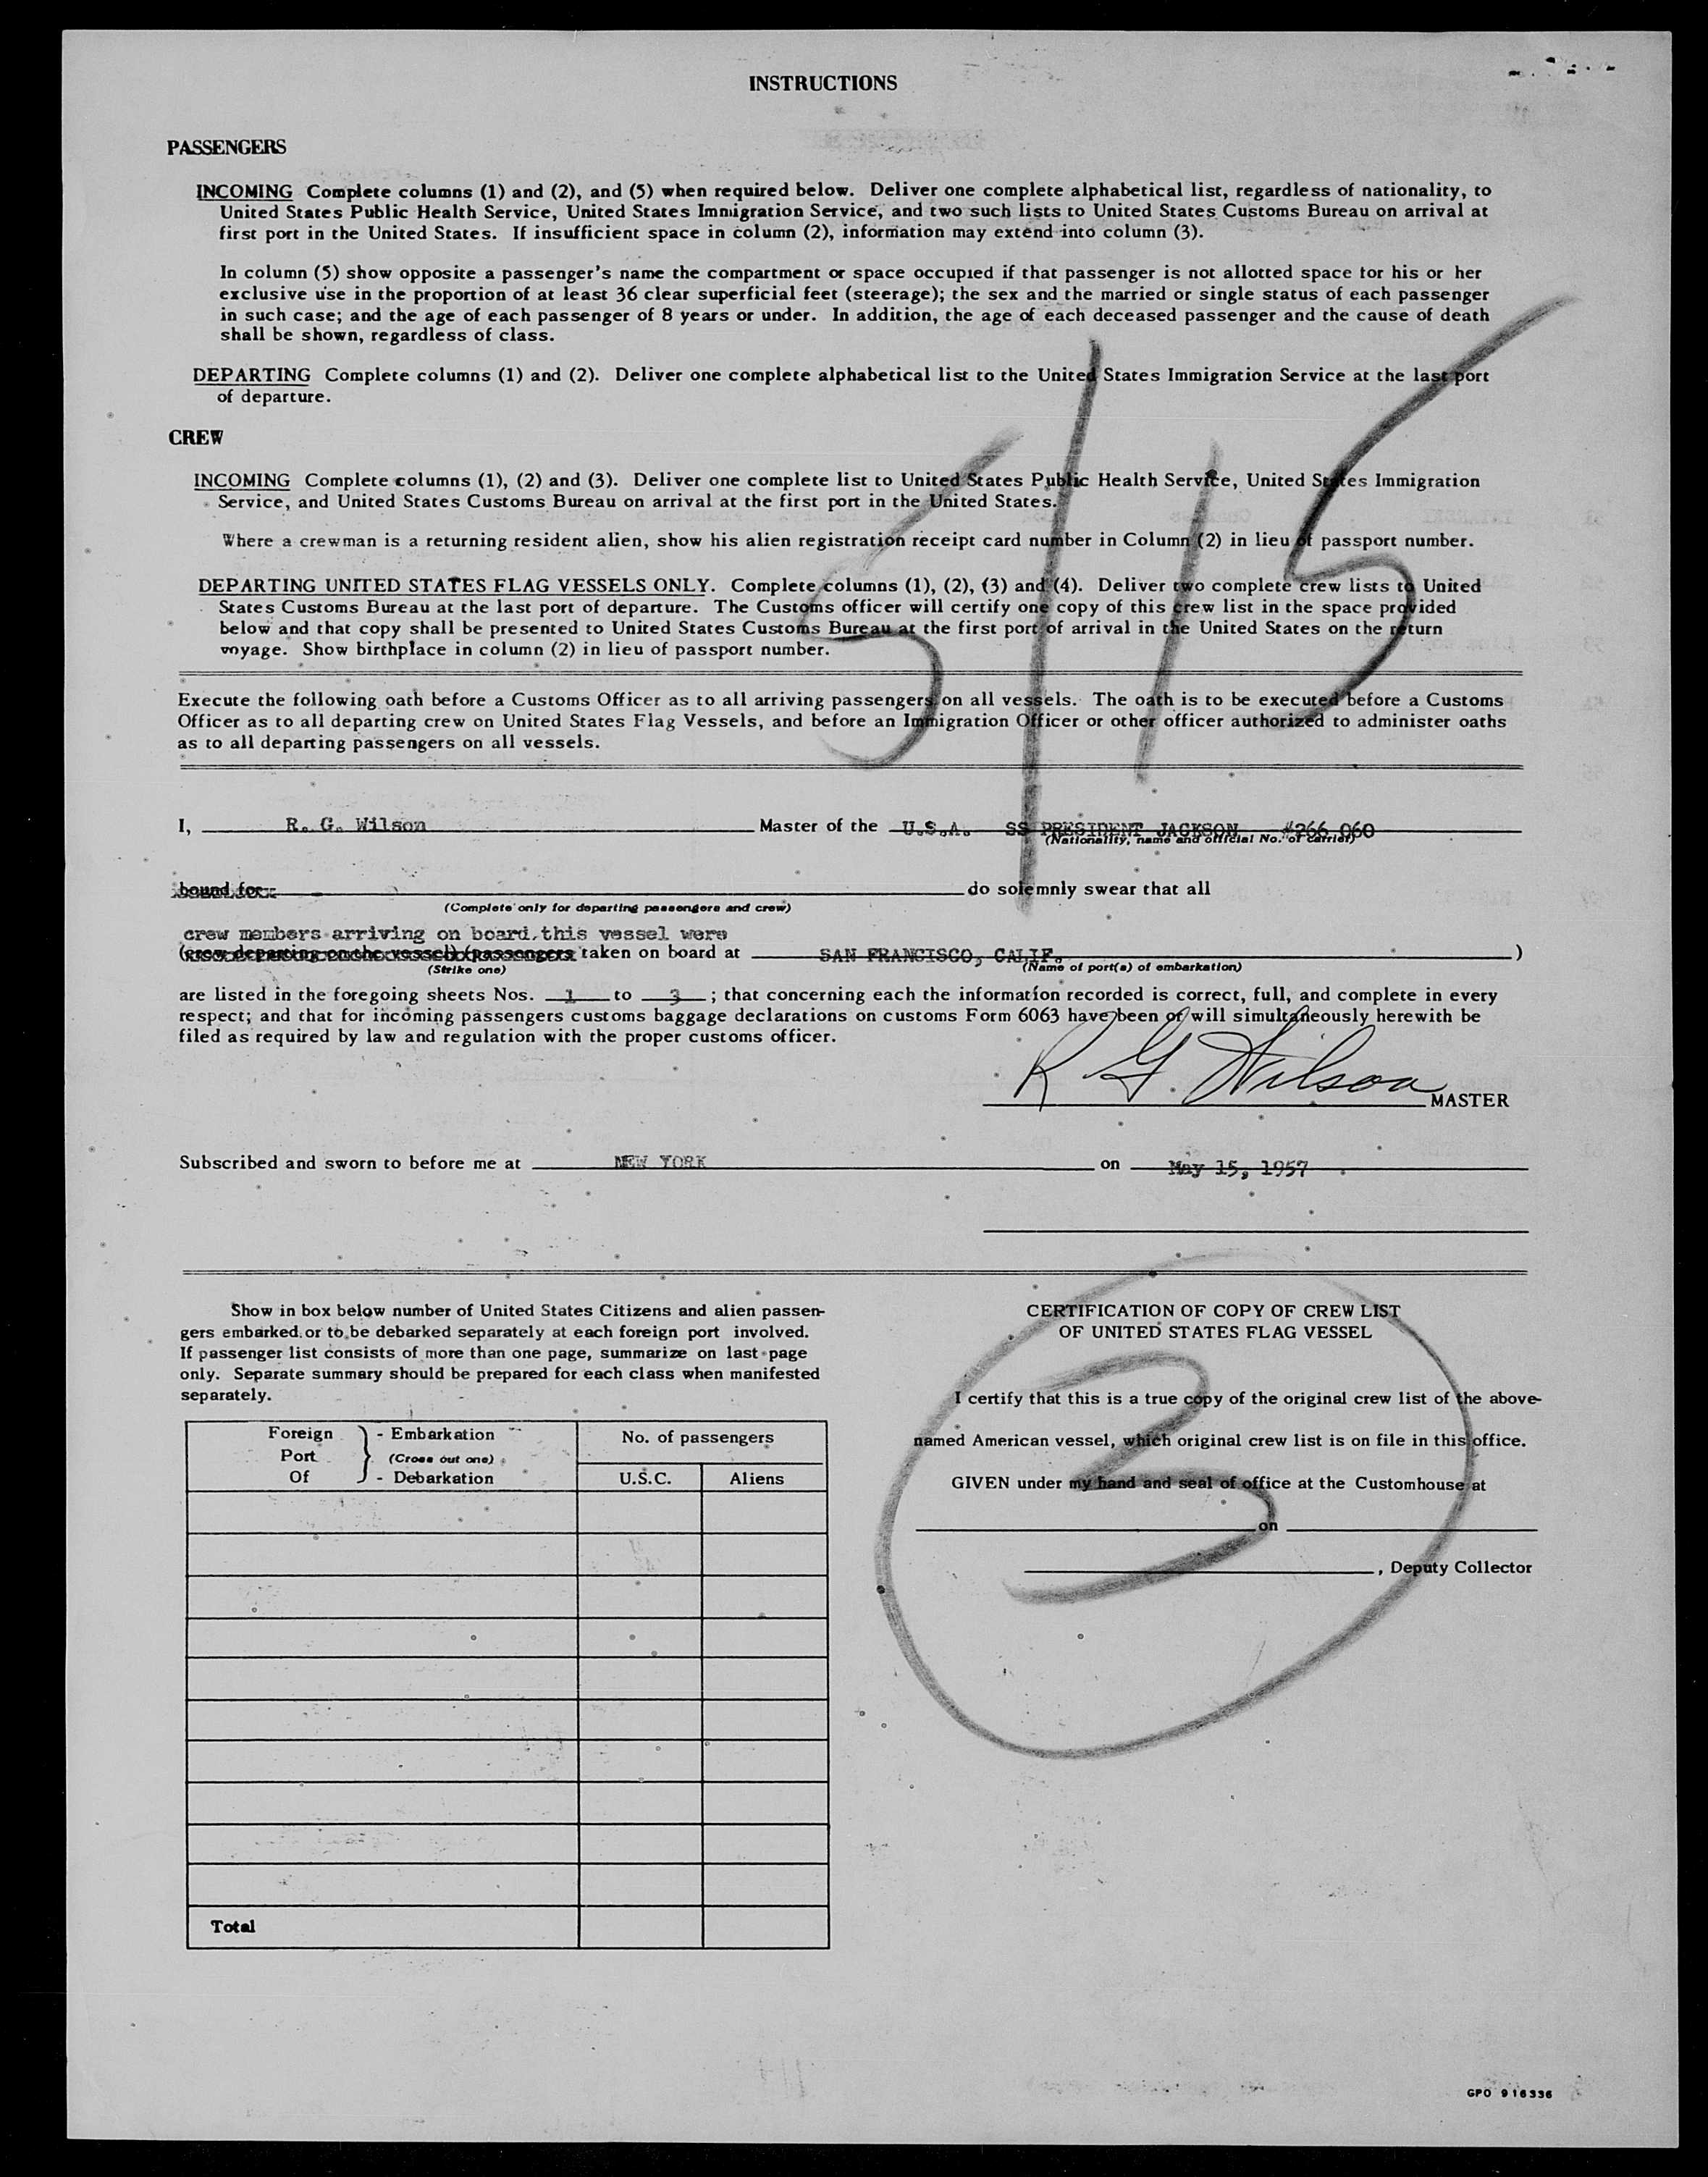 INSTRUCTIONS
PASSENGERS
INCOMING Complete columns (1) and (2), and (5) when required below. Deliver one complete alphabetical list, regardless of nationality, to
United States Public Health Service, United States Immigration Service, and two such lists to United States Customs Bureau on arrival at
first port in the United States. If insufficient space in column (2), information may extend into column (3).
In column (5) show opposite a passenger's name the compartment or space occupied if that passenger is not allotted space for his or her
exclusive use in the proportion of at least 36 clear superficial feet (steerage); the sex and the married or single status of each passenger
in such case; and the age of each passenger of 8 years or under. In addition, the age of each deceased passenger and the cause of death
shall be shown, regardless of class.
DEPARTING Complete columns (1) and (2). Deliver one complete alphabetical list to the United States Immigration Service at the last port
of departure.
CREW
INCOMING Complete columns (1), (2) and (3). Deliver one complete list to United States Public Health Service, United States Immigration
Service, and United States Customs Bureau on arrival at the first port in the United States.
Where a crewman is a returning resident alien, show his alien registration receipt card number in Column (2) in lieu of passport number.
DEPARTING UNITED STATES FLAG VESSELS ONLY. Complete columns (1), (2), (3) and (4). Deliver two complete crew lists to United
States Customs Bureau at the last port of departure. The Customs officer will certify one copy of this crew list in the space provided
below and that copy shall be presented to United States Customs Bureau at the first port of arrival in the United States on the return
voyage. Show birthplace in column (2) in lieu of passport number.
5/15
Execute the following oath before a Customs Officer as to all arriving passengers on all vessels. The oath is to be executed before a Customs
Officer as to all departing crew on United States Flag Vessels, and before an Immigration Officer or other officer authorized to administer oaths
as to all departing passengers on all vessels.
I, R. G. Wilson Master of the U.S.A. SS PRESIDENT JACKSON #266 060
(Nationality, name and official No. of carrier)
bound for do solemnly swear that all
(Complete only for departing passengers and crew)
crew members arriving on board this vessel were
(crew departing on the vessel) (passengers taken on board at SAN FRANCISCO, CALIF. )
(Strike one) (Name of port(s) of embarkation)
are listed in the foregoing sheets Nos. 1 to 3 ; that concerning each the information recorded is correct, full, and complete in every
respect; and that for incoming passengers customs baggage declarations on customs Form 6063 have been or will simultaneously herewith be
filed as required by law and regulation with the proper customs officer.
R G. Wilson MASTER
Subscribed and sworn to before me at NEW YORK on May 15, 1957
Show in box below number of United States Citizens and alien passen-
gers embarked or to be debarked separately at each foreign port involved.
If passenger list consists of more than one page, summarize on last page
only. Separate summary should be prepared for each class when manifested
separately.
Foreign - Embarkation No. of passengers
Port (Cross out one)
Of - Debarkation U.S.C. Aliens
Total
CERTIFICATION OF COPY OF CREW LIST
OF UNITED STATES FLAG VESSEL
I certify that this is a true copy of the original crew list of the above-
named American vessel, which original crew list is on file in this office.
GIVEN under my hand and seal of office at the Customhouse at
on
, Deputy Collector
3
GPO 916336